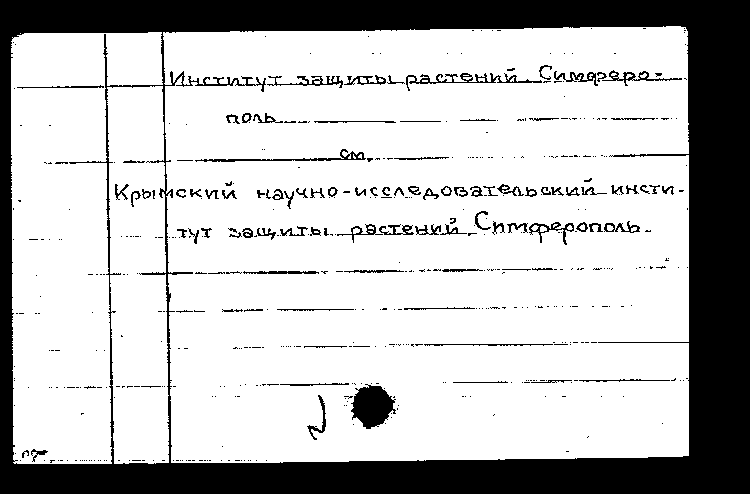 Институт защиты растений. Симферо-
поль
см.
Крымский научно-исследовательский инсти-
тут защиты растений. Симферополь.